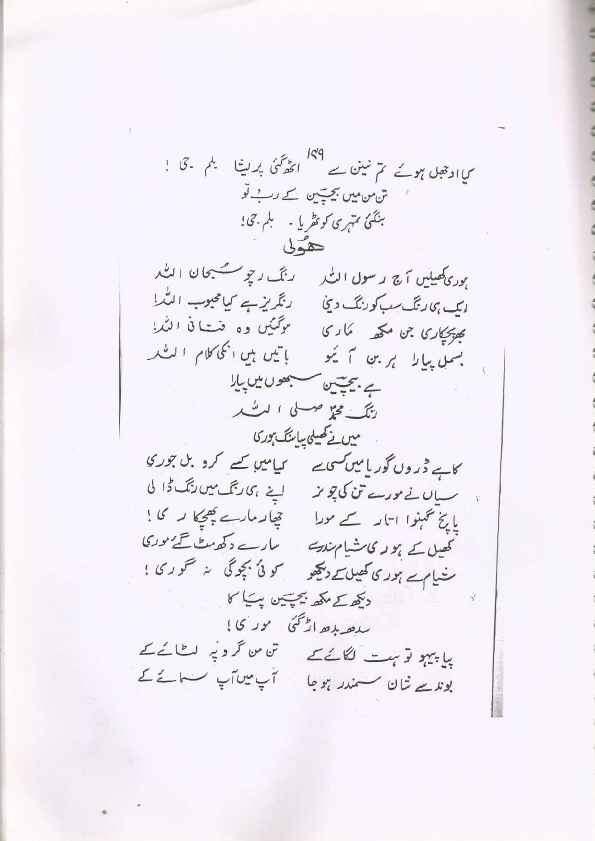 ۱۹۹
کیا اوجھل ہوئے تم نینن سے اٹھ گئی پریتا بلم جی !
تن من میں بیچین کے رب تو
بنگئی تمہری کوٹھریا ۔ بلم جی!
ھولی
ہوری کھیلیں آج رسول اللہ رنگ رچو سبحان اللہ
ایک ہی رنگ سب کو رنگ دینی رنگریز ہے کیا محبوب اللہ!
بھر پچکاری جن مکھ ماری ہوگئیں وہ فنا فی اللہ!
بسمل پیارا ہر بن آئیو باتیں ہیں انکی کلام اللہ
ہے بیچین سبھوں میں پیارا
رنگ محمدؐ صلی اللہ
میں نے کھیلی پیا سنگ ہوری
کاہے ڈروں گوریا میں کسی سے کیا میں کسے کرو بل جوری
سیاں نے مورے تن کی چونر اپنے ہی رنگ میں رنگ ڈالی
پانچ گہنوا اتار کے مورا چھار مارے پچکاری !
کھیل کے ہوری شیام سندر سے سارے دکھ مٹ گئے موری
شیام سے ہوری کھیل کے دیکھو کوئی بچوگی نہ گوری !
دیکھ کے مکھ بیچین پیا کا
سدھ بدھ اڑ گئی موری !
پیا پیہو تو ہت لگائے کے تن من گرو پہ لٹائے کے
بوند سے شان سمندر ہو جا آپ میں آپ سمائے کے